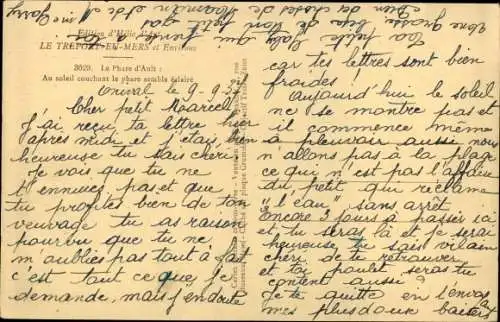 Edition d'Hélio d'Art
LE TRÉPORT-EN-MERS et Environs
3029. Le Phare d'Ault :
Au soleil couchant le phare semble éclairé
Onival le 9-9-37
Cher petit Marcel
J'ai reçu ta lettre hier
après midi et j'étais bien
heureuse tu sais chéri
Je vois que tu ne
t'ennuies pas et que
tu profites bien de ton
veuvage tu as raison
pourvu que tu ne
m'oublies pas tout à fait
c'est tout ce que je
demande, mais j'en doute
car tes lettres sont bien
froides !
Aujourd'hui le soleil
ne se montre pas et
il commence même
à pleuvoir aussi nous
n'allons pas à la plage
ce qui n'est pas l'affaire
du petit qui réclame
"l'eau" sans arrêt
Encore 3 jours à passer ici
et tu seras là et je serai
heureuse, tu sais vilain
chéri de te retrouver
et toi poulet seras tu
content aussi ?
Je te quitte en t'envoyant
mes plus doux baisers